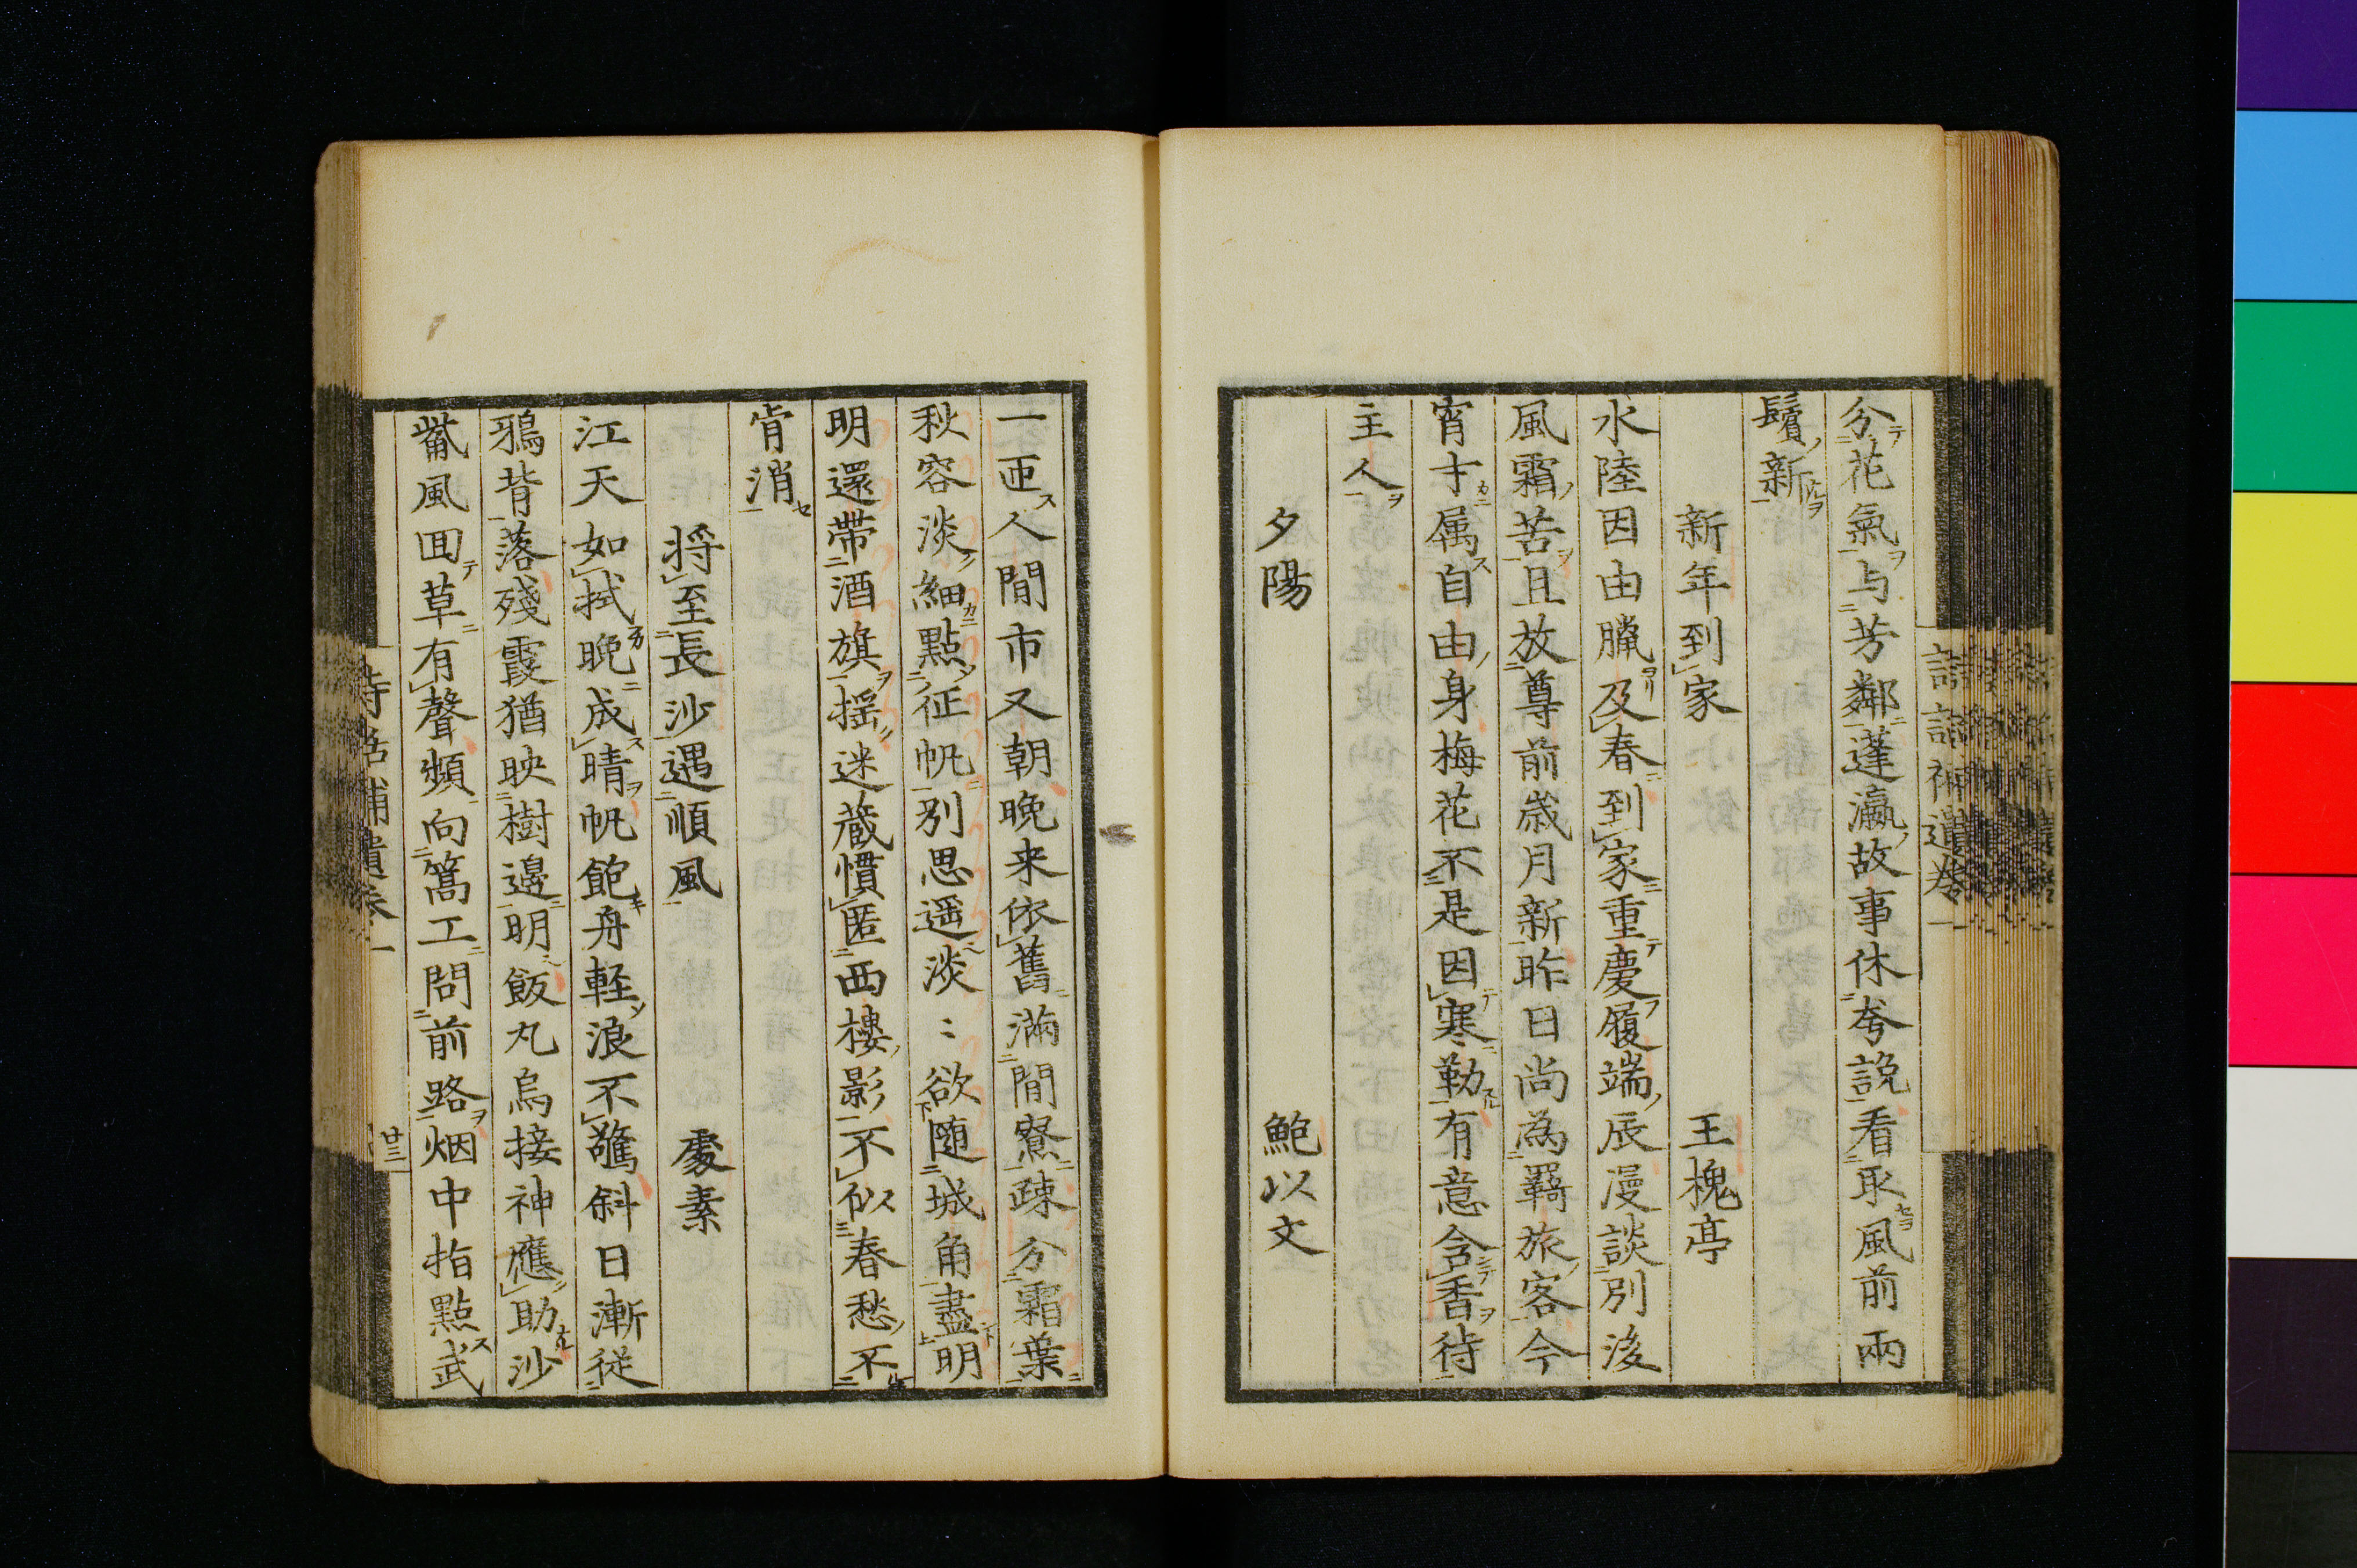 分花氣与芳鄰蓬瀛故事休夸說看取風前兩
鬢新
新年到家 王槐亭
水陸因由臘及春到家重慶履端辰漫談別後
風霜苦且放尊前歳月新昨日尚為羇旅客今
宵才属自由身梅花不是因寒勒有意含香待
主人
夕陽 鮑以文
一匝人間市又朝晩来依舊滿閒寮疎分霜葉
秋容淡細點征帆別思遥淡〻欲随城角盡明
明還帶酒旗揺迷蔵慣匿西樓影不似春愁不
肯消
将至長沙遇順風 𠁅素
江天如拭晩成晴帆飽舟軽浪不驚斜日漸従
鴉背落殘霞猶映樹邊明飯丸烏接神應助沙
觜風回草有聲頻向篙工問前路烟中指點武
詩話補遺卷一
廿三